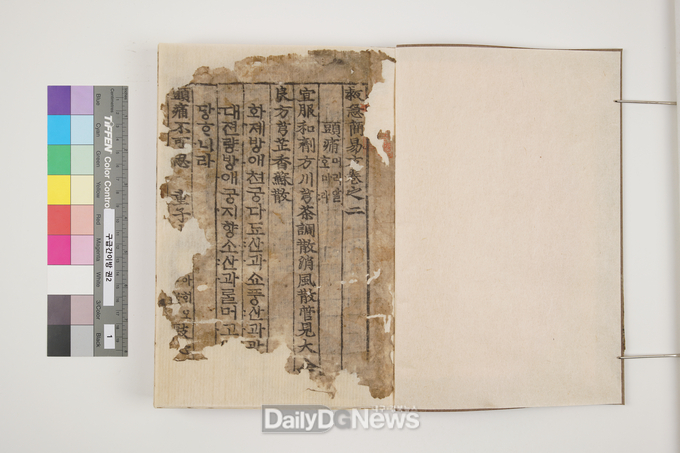 救急簡易方卷之二
頭痛
宜服和劑方川芎茶調散消風散管見大全
良方芎芷香蘇散
화제방애쳔궁다됴산과쇼풍산과과
대젼량방애궁지향소산과ᄅᆞᆯ머고
당ᄒᆞ니라
頭痛不可忍 童子
TIFFEN Color Control
Blue
Cyan
Green
Yellow
Red
Magenta
White
3/Color
Black
구급간이방 권2
1
DailyDGNews